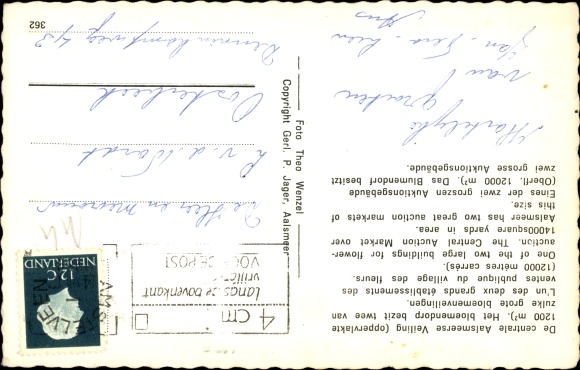 De centrale Aalsmeerse Veiling (oppervlakte
1200 m²). Het bloemendorp bezit twee van
zulke grote bloemenveilingen.
L'un des deux grands établissements des
ventes publique du village des fleurs.
(12000 mètres carrés).
One of the two large buildings for flower-
auction. The Central Auction Market over
14000square yards in area.
Aalsmeer has two great auction markets of
this size.
Eines der zwei grossen Auktionsgebäude
(Oberfl. 12000 m²). Das Blumendorf besitzt
zwei grosse Auktionsgebäude.
Hartelijke
groeten
van
Jan - Fera - hien
Foto Theo Wenzel
Copyright Gerl. P. Jager, Aalsmeer
4 cm
Langs de bovenkant
vrijlaten
VOOR DE POST
AMSTELVEEN
NEDERLAND
12 C
De Heer en Mevrouw
v. d. Wardt
Oosterbeek
362